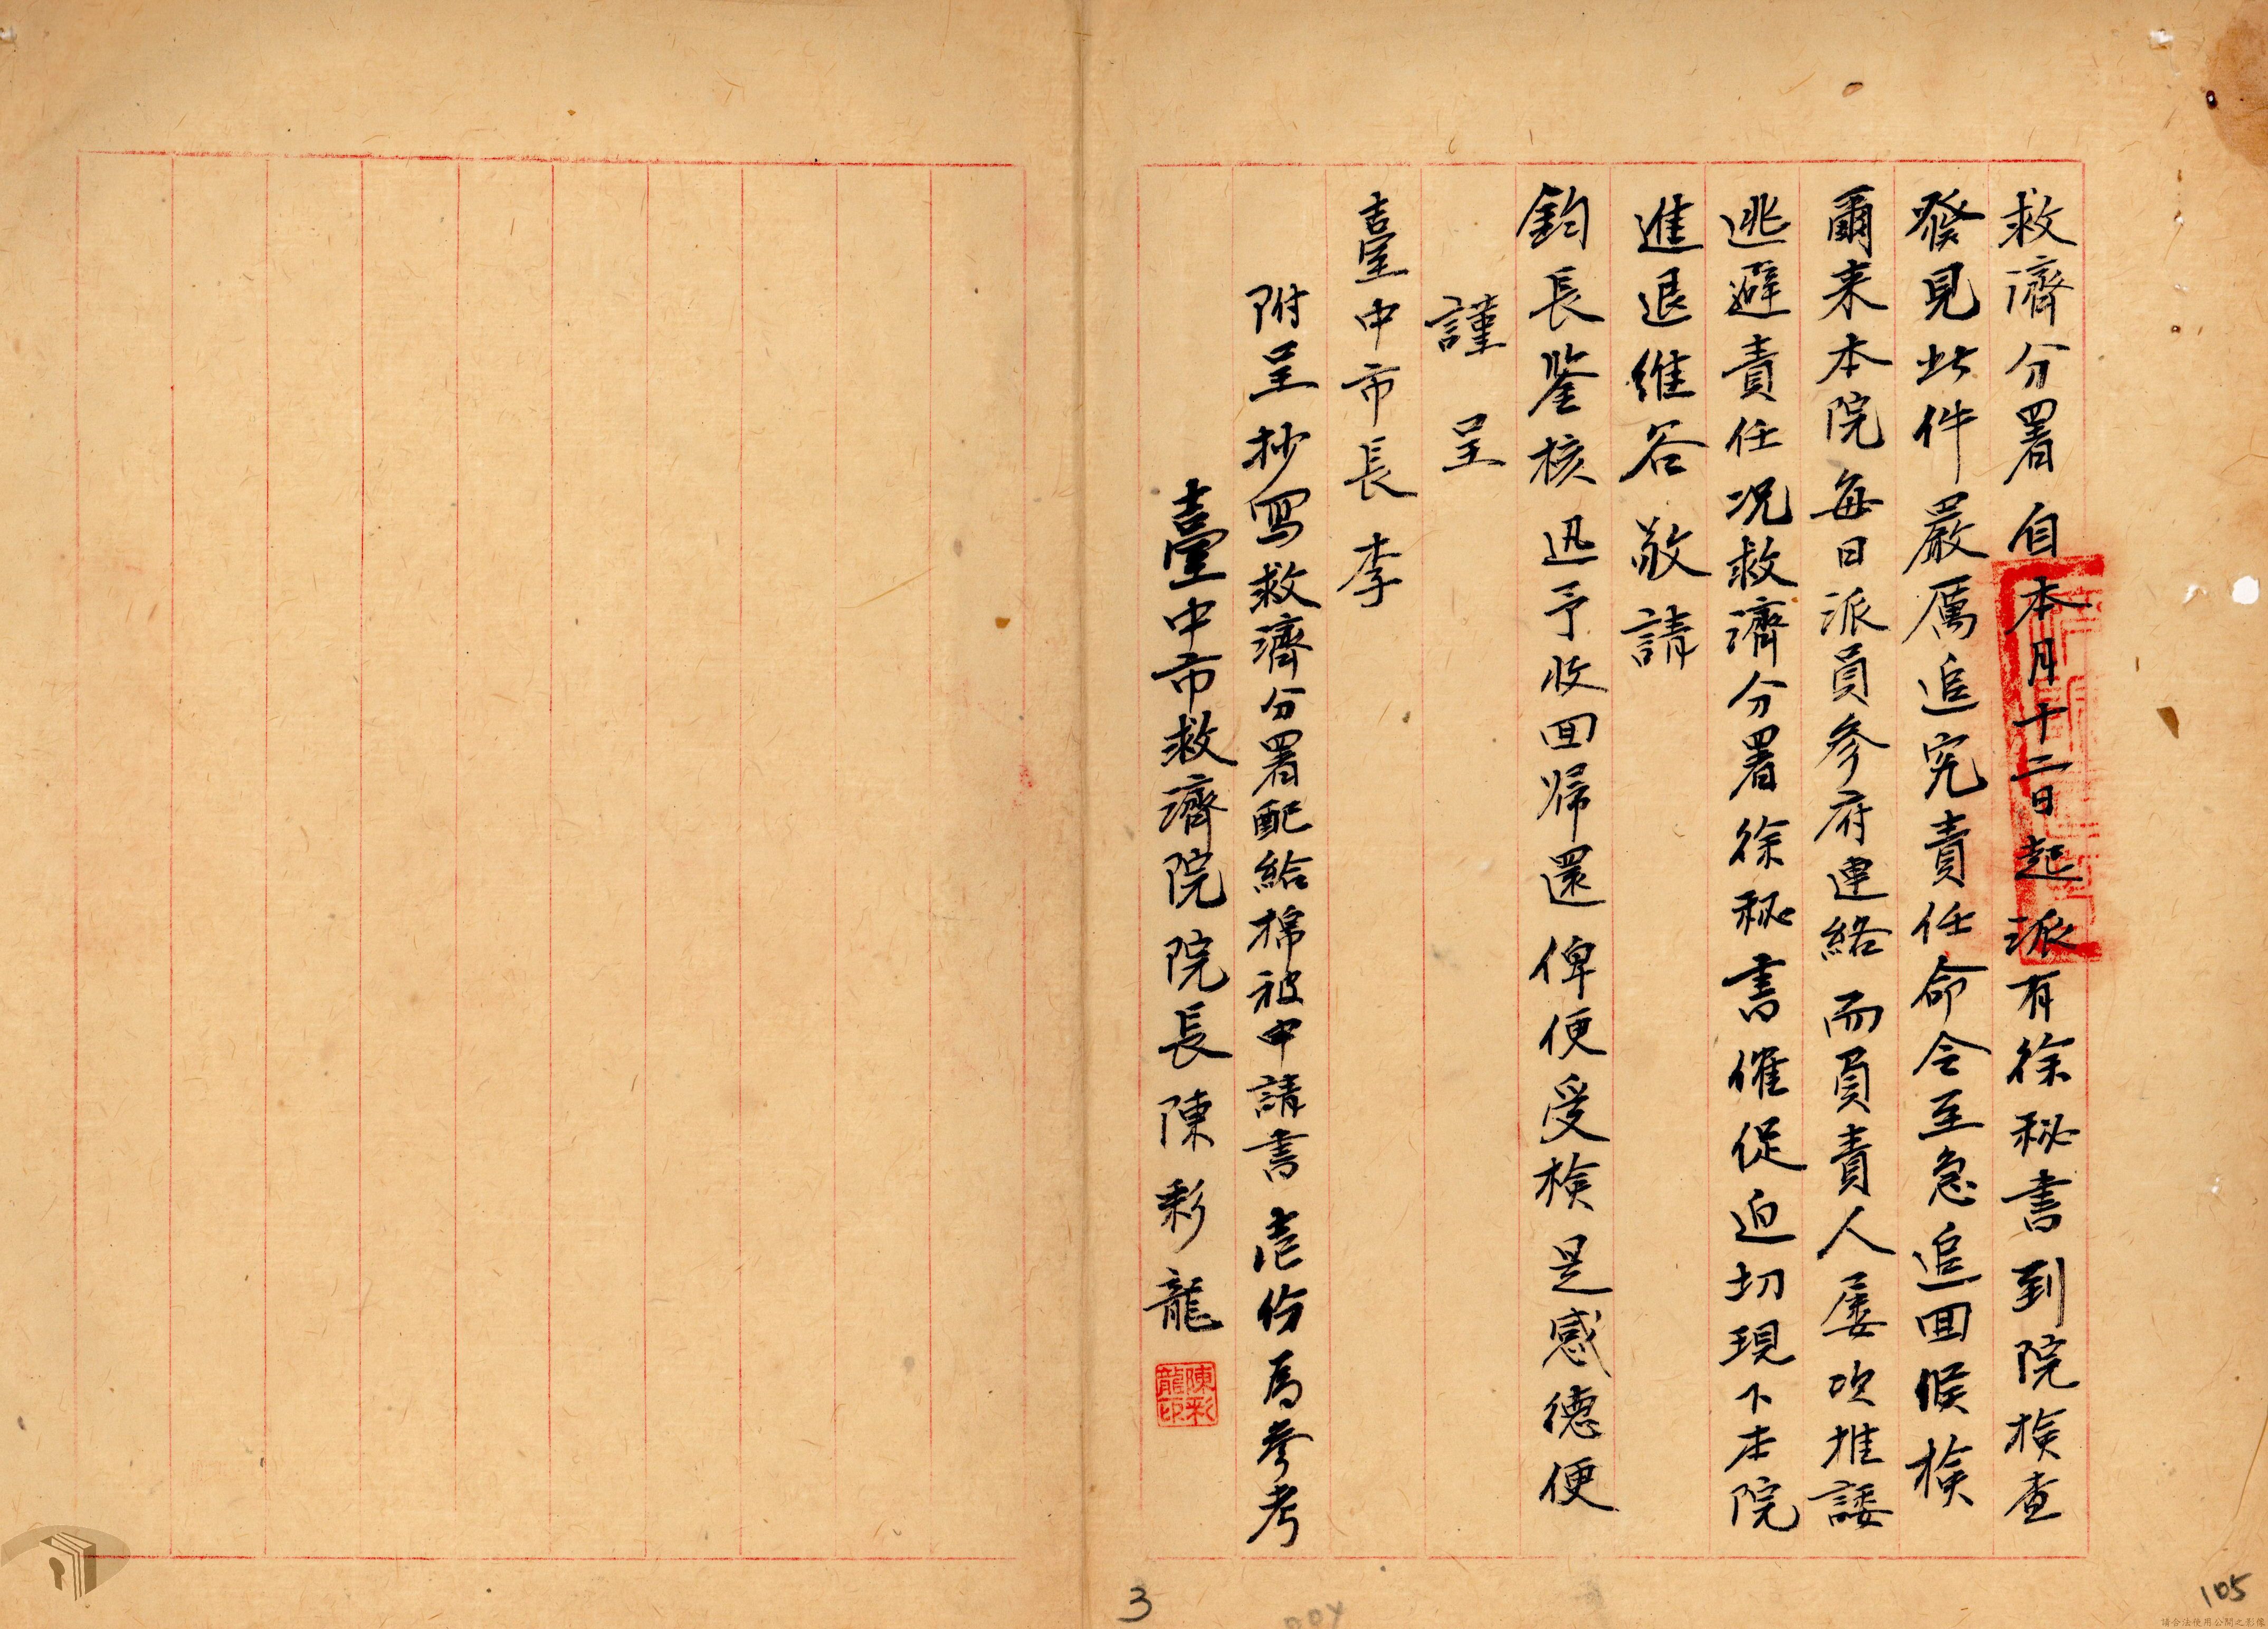 救濟分署自本月十二日起派有徐秘書到院檢查
發見此件嚴厲追究責任命令至急追回候檢
爾来本院每日派員參府連絡而負責人屡次推諉
逃避責任况救濟分署徐秘書催促迫切現下本院
進退維谷敬請
鈞長鑒核迅予收回帰還俾便受檢是感德便
謹呈
臺中市長李
附呈抄寫救濟分署配給棉被申請書壱份爲參考
臺中市救濟院院長陳彩龍
陳彩龍印
3
105
請合法使用公開之影像